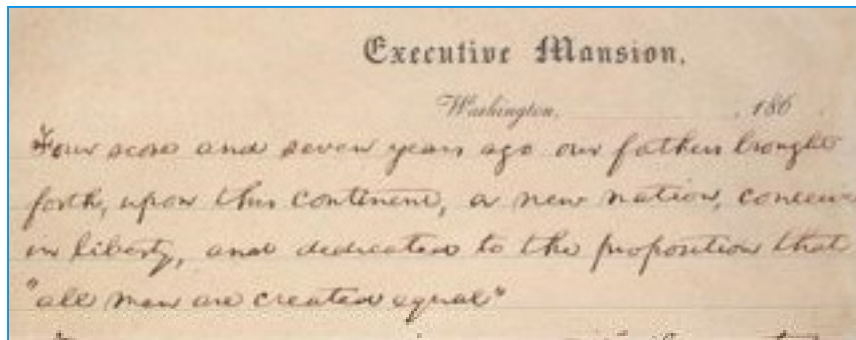 Executive Mansion,
Washington, , 186
Four score and seven years ago our fathers brought
forth, upon this continent, a new nation, conceiv
in liberty, and dedicated to the proposition that
"all men are created equal"